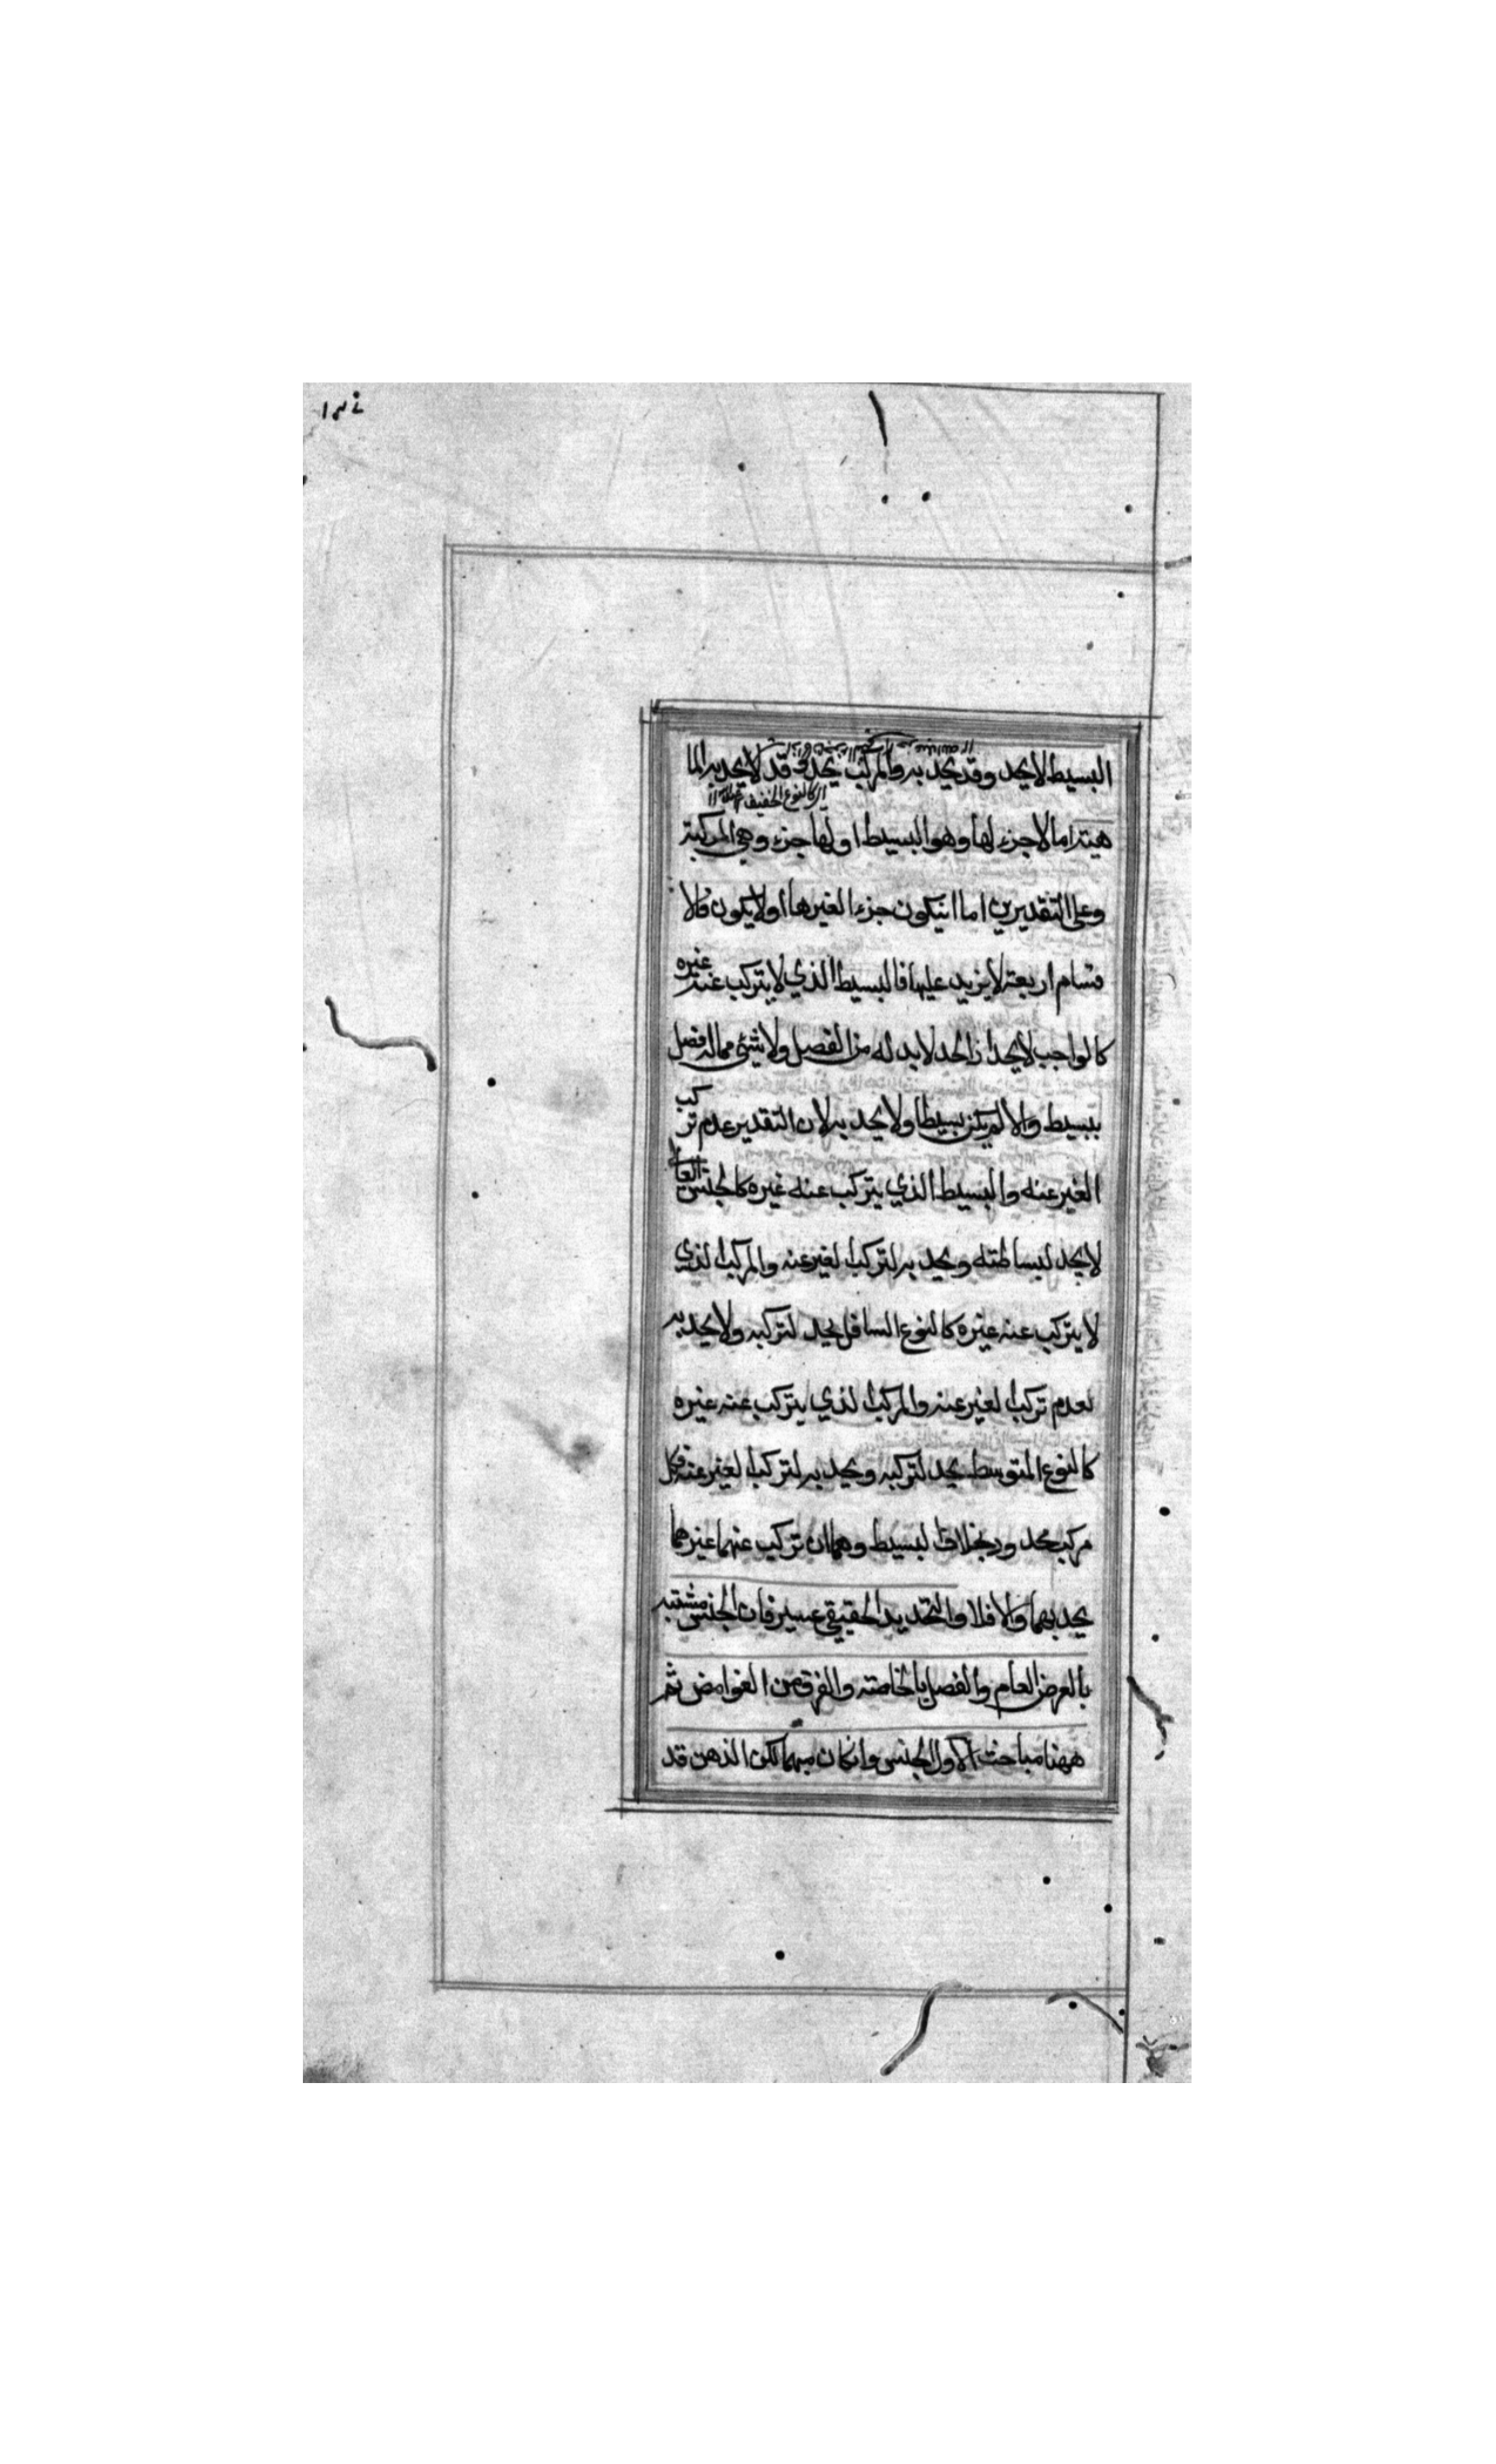 البسيط لا يحد وقد يحد به والمركب يحد وقد لا يحد به الما
هية اما لا جزء لها وهو البسيط او لها جزء وهي المركبة
وعلى التقديرين اما انيكون جزء الغيرها اولا يكون فالا
قسام اربعة لا يزيد عليها فالبسيط الذي لا يتركب عنه غيره
كالواجب لا يحد اذ الحد لا بد له من الفصل ولا شئ مما له فصل
ببسيط والا لم يكن بسيطا ولا يحد به لان التقدير عدم تركب
الغير عنه والبسيط الذي يتركب عنه غيره كالجنس العالي
لا يحد لبساطته ويحد به لتركب الغير عنه والمركب الذي
لا يتركب عنه غيره كالنوع السافل يحد لتركبه ولا يحد به
لعدم تركب الغير عنه والمركب الذي يتركب عنه غيره
كالنوع المتوسط يحد لتركبه ويحد به لتركب الغير عنه فكل
مركب محدود بخلاف البسيط وهما ان تركب عنهما غيرهما
يحد بهما والا فلا والتحديد الحقيقي عسير فان الجنس مشتبه
بالعرض العام والفصل بالخاصة والفرق من الغوامض ثم
ههنا مباحث الاول الجنس وانكان مبهما لكن الذهن قد